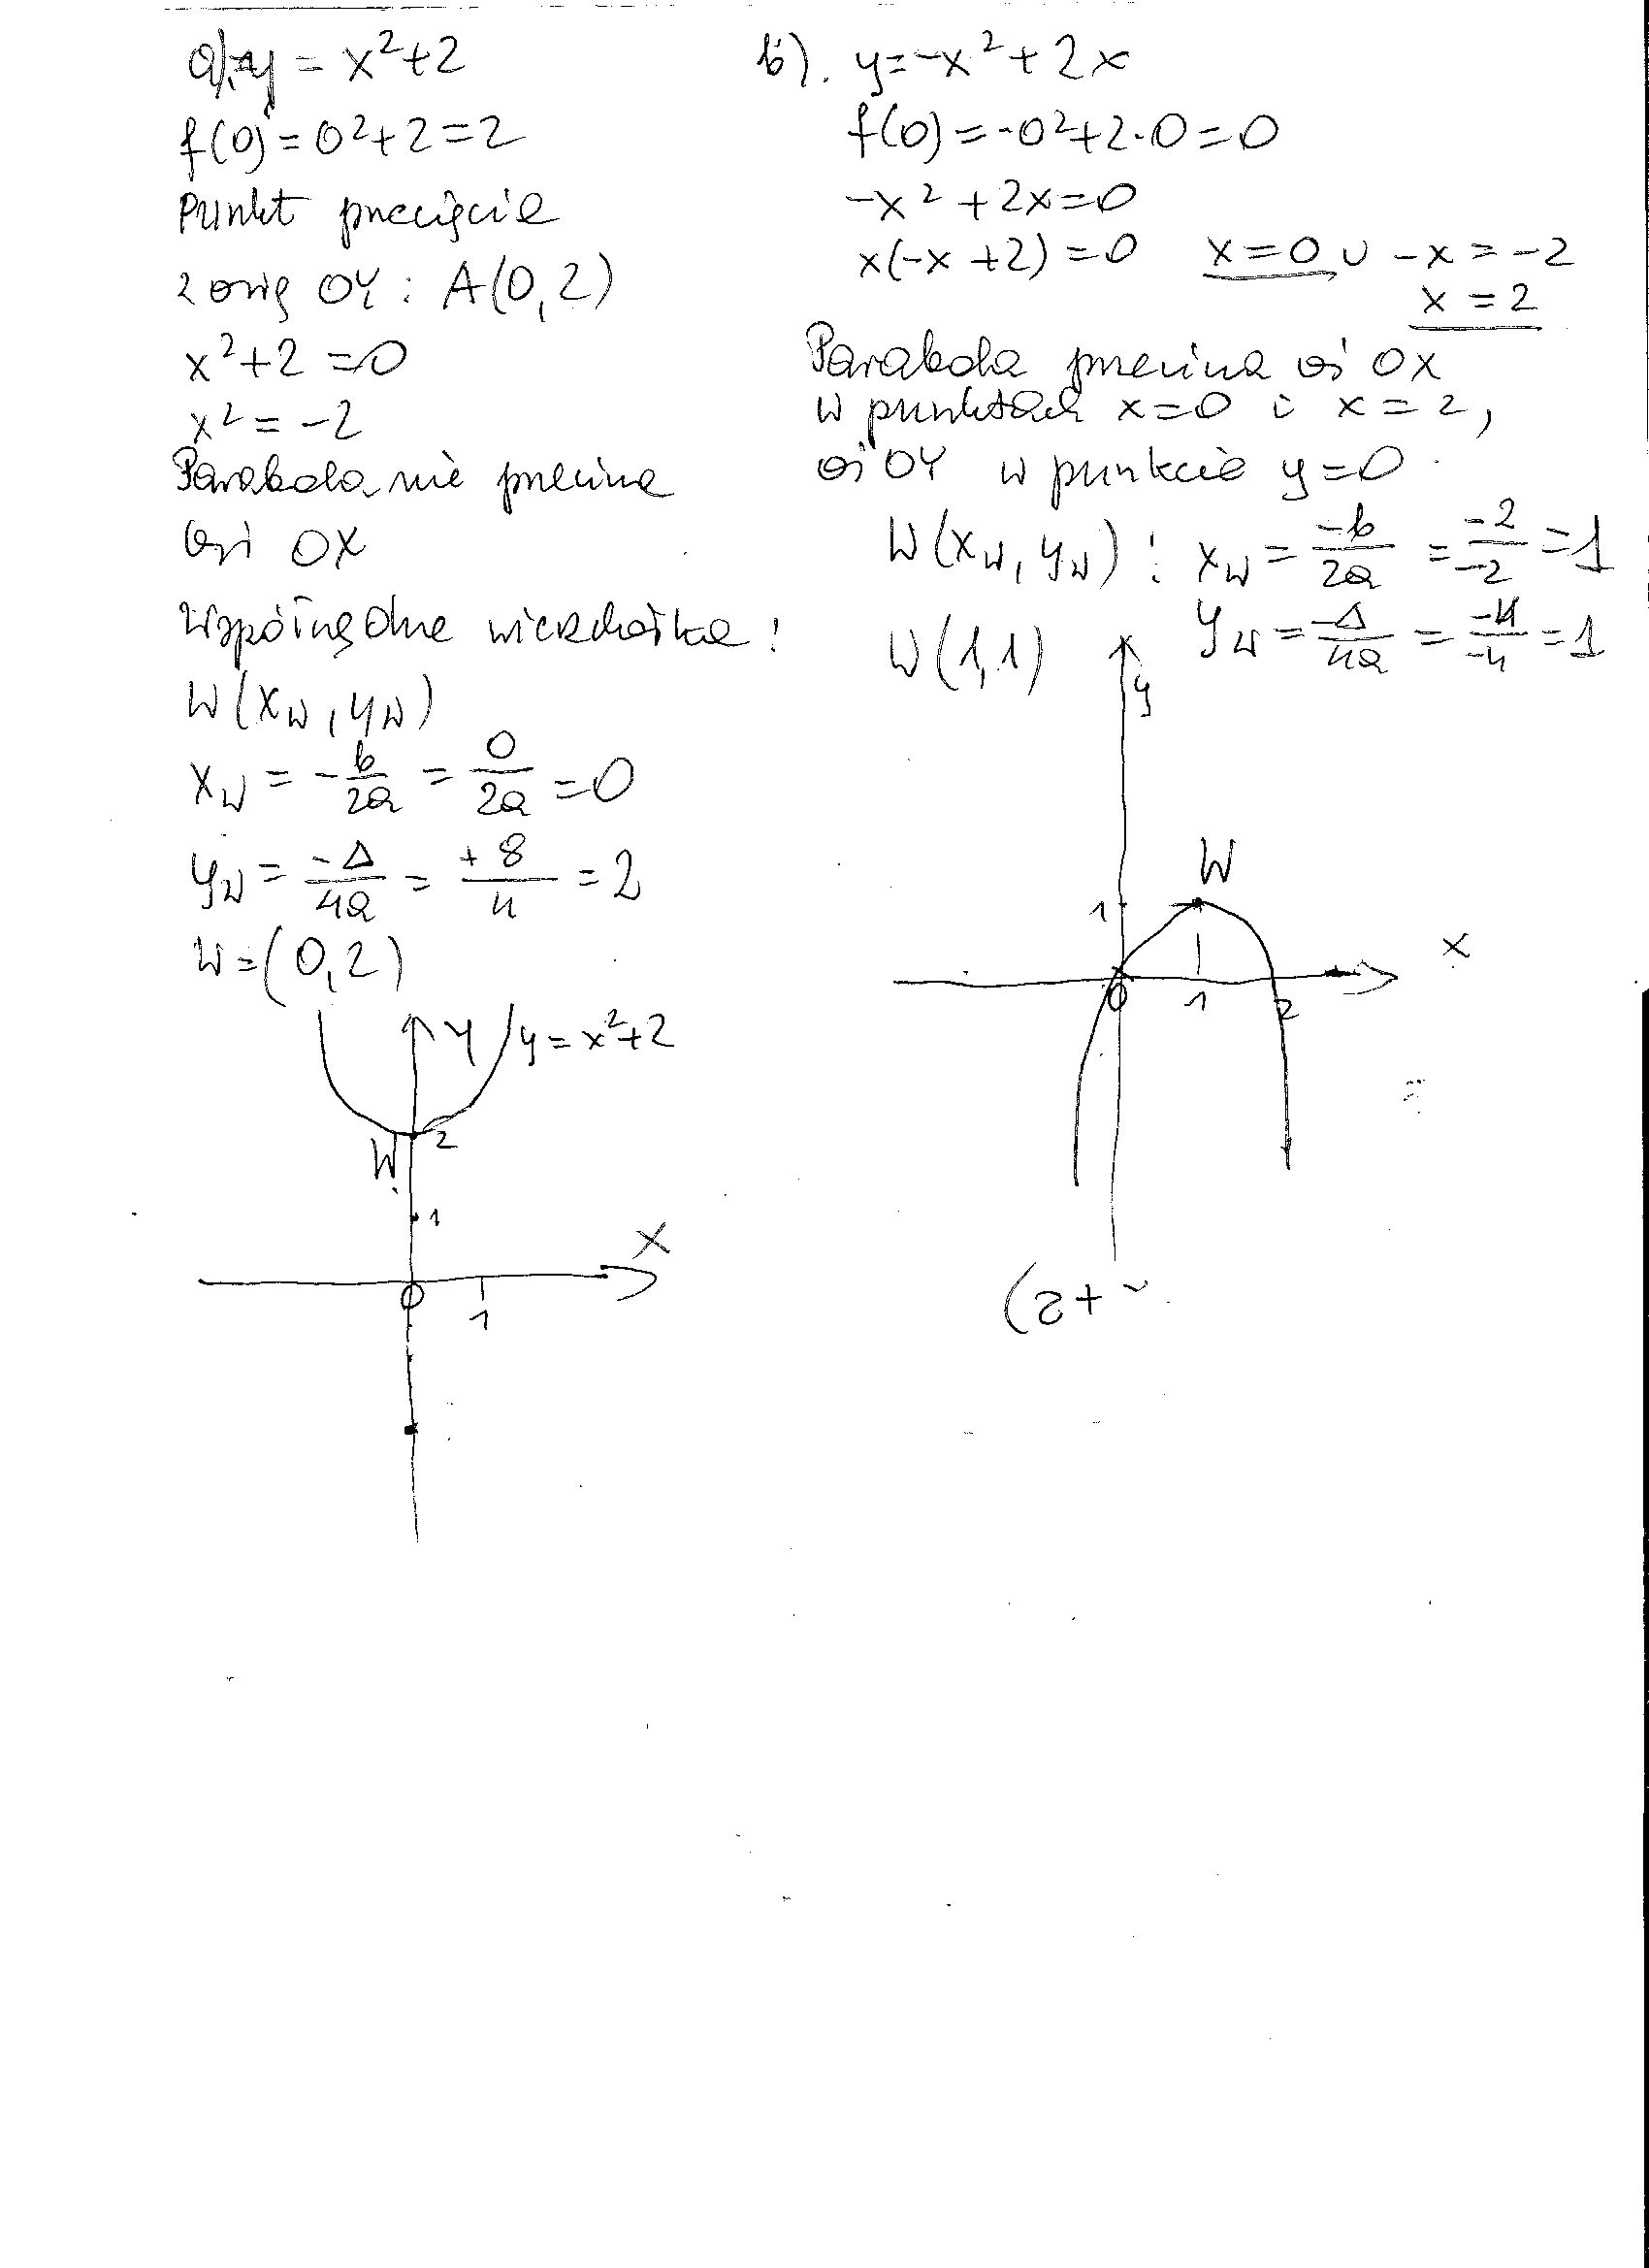 a) y = x²+2
f(0) = 0²+2 = 2
Punkt przecięcia
z osią OY : A(0,2)
x²+2 = 0
x² = -2
Parabola nie przecina
osi OX
Współrzędne wierzchołka :
W(x_W, y_W)
x_W = -b/2a = 0/2a = 0
y_W = -Δ/4a = +8/4 = 2
W = (0,2)
Y
y = x²+2
W
2
1
X
0
1
b). y = -x² + 2x
f(0) = -0²+2·0 = 0
-x² + 2x = 0
x(-x +2) = 0 x = 0 ∪ -x = -2
x = 2
Parabola przecina oś OX
w punktach x=0 i x = 2,
oś OY w punkcie y=0
W(x_W, y_W) : x_W = -b/2a = -2/-2 = 1
y_W = -Δ/4a = -4/-4 = 1
W(1,1)
y
W
1
x
0
1
2
(2+